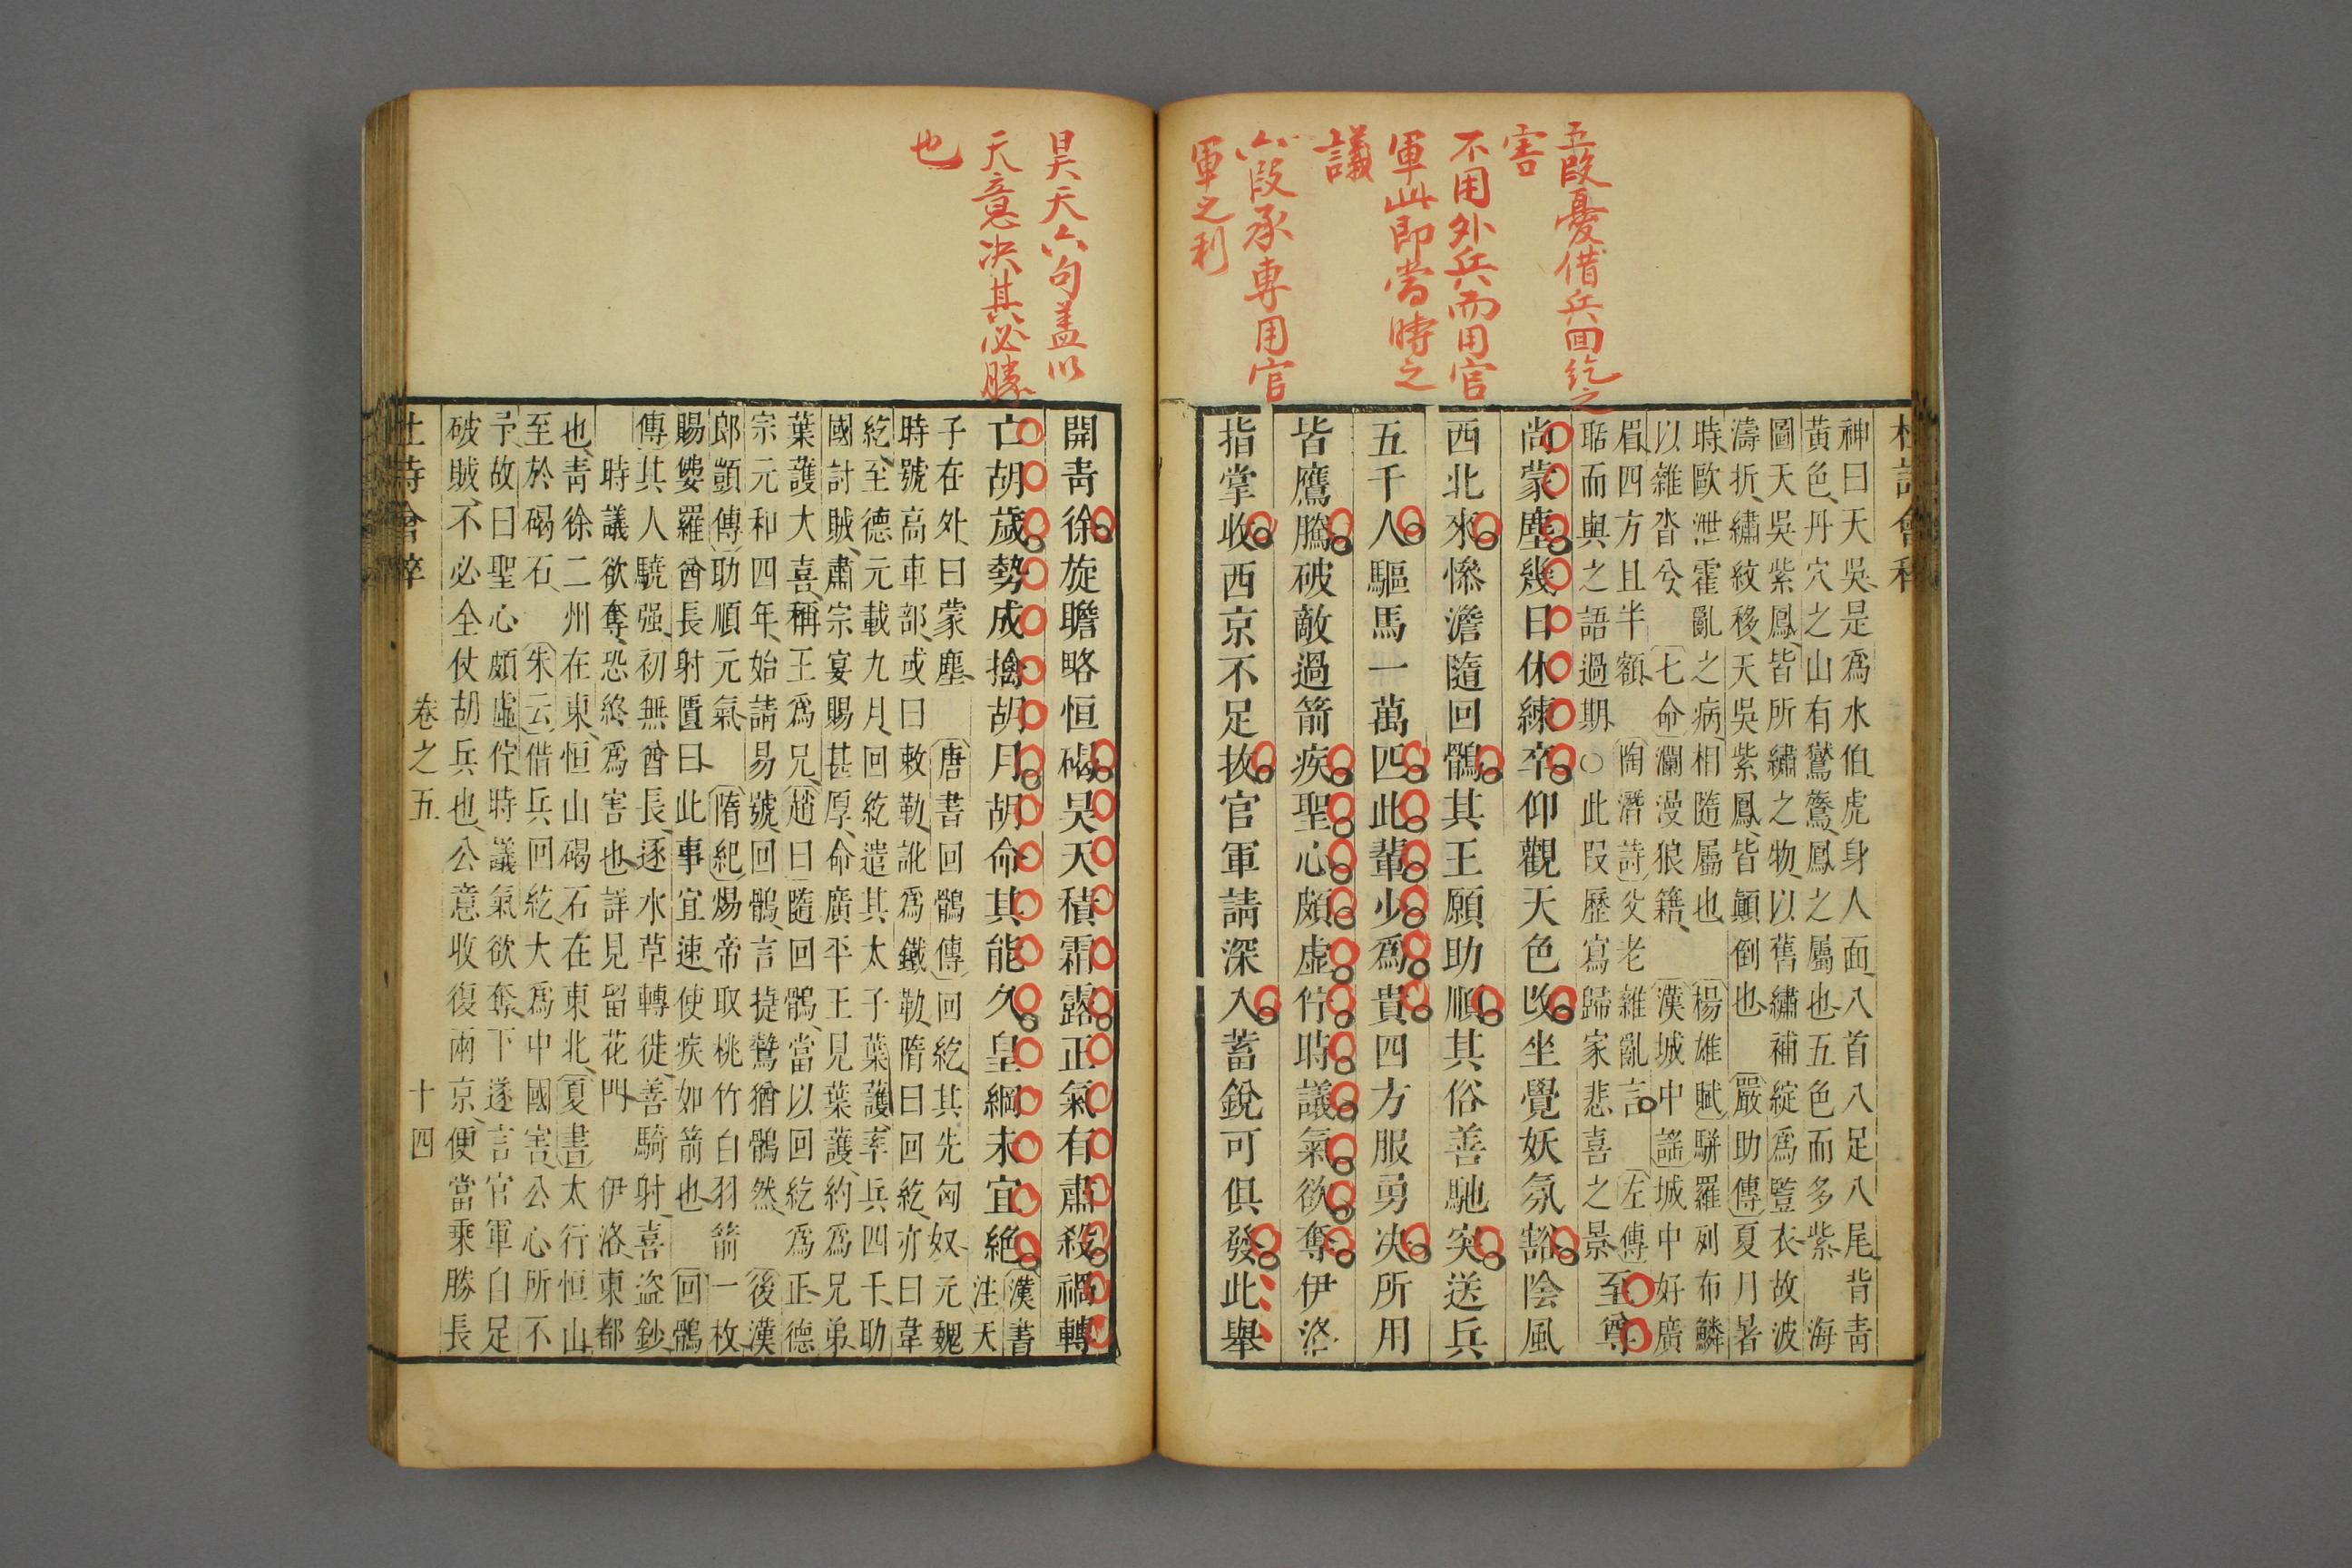 五段憂借兵回紇之
害
不用外兵而用官
軍此即當時之
議
六段承專用官
軍之利
神曰天吳是爲水伯虎身人面八首八足八尾背青
黃色丹穴之山有鸑鷟鳳之屬也五色而多紫 海
圖天吳紫鳳皆所繡之物以舊繡補綻爲豎衣故波
濤折繡紋移天吳紫鳳皆顛倒也 嚴助傳夏月暑
時歐泄霍亂之病相隨屬也 楊雄賦駢羅列布鱗
以雜沓兮 七命瀾漫狼籍 漢城中謠城中好廣
眉四方且半額 陶潛詩父老雜亂言 左傳
聒而與之語過期○此段歷寫歸家悲喜之景 至尊
尚蒙塵幾日休練卒仰觀天色改坐覺妖氛豁陰風
西北來慘澹隨回鶻其王願助順其俗善馳突送兵
五千人驅馬一萬匹此輩少爲貴四方服勇决所用
皆鷹騰破敵過箭疾聖心頗虛佇時議氣欲奪伊洛
指掌收西京不足拔官軍請深入蓄銳可俱發此舉
昊天六句蓋以
天意決其必勝
也
開青徐旋瞻略恒碣昊天積霜露正氣有肅殺禍轉
亡胡歲勢成擒胡月胡命其能久皇綱未宜絶 漢書
注天
子在外曰蒙塵 唐書回鶻傳回紇其先匈奴元魏
時號高車部或曰敕勒訛爲鐵勒隋曰回紇亦曰韋
紇至德元載九月回紇遣其太子葉護率兵四千助
國討賊肅宗宴賜甚厚命廣平王見葉護約爲兄弟
葉護大喜稱王爲兄 趙曰隨回鶻當以回紇爲正德
宗元和四年始請易號回鶻言捷鷙猶鶻然 後漢
郎顗傳助順元氣 隋紀煬帝取桃竹白羽箭一枚
賜婁羅酋長射匱曰此事宜速使疾如箭也 回鶻
傳其人驍强初無酋長逐水草轉徙善騎射喜盜鈔
時議欲奪恐終爲害也詳見留花門 伊洛東都
也青徐二州在東恒山碣石在東北 夏書太行恒山
至於碣石 朱云借兵回紇大爲中國害公心所不
予故曰聖心頗虛佇時議氣欲奪下遂言官軍自足
破賊不必全仗胡兵也公意收復兩京便當乘勝長
卷之五 十四